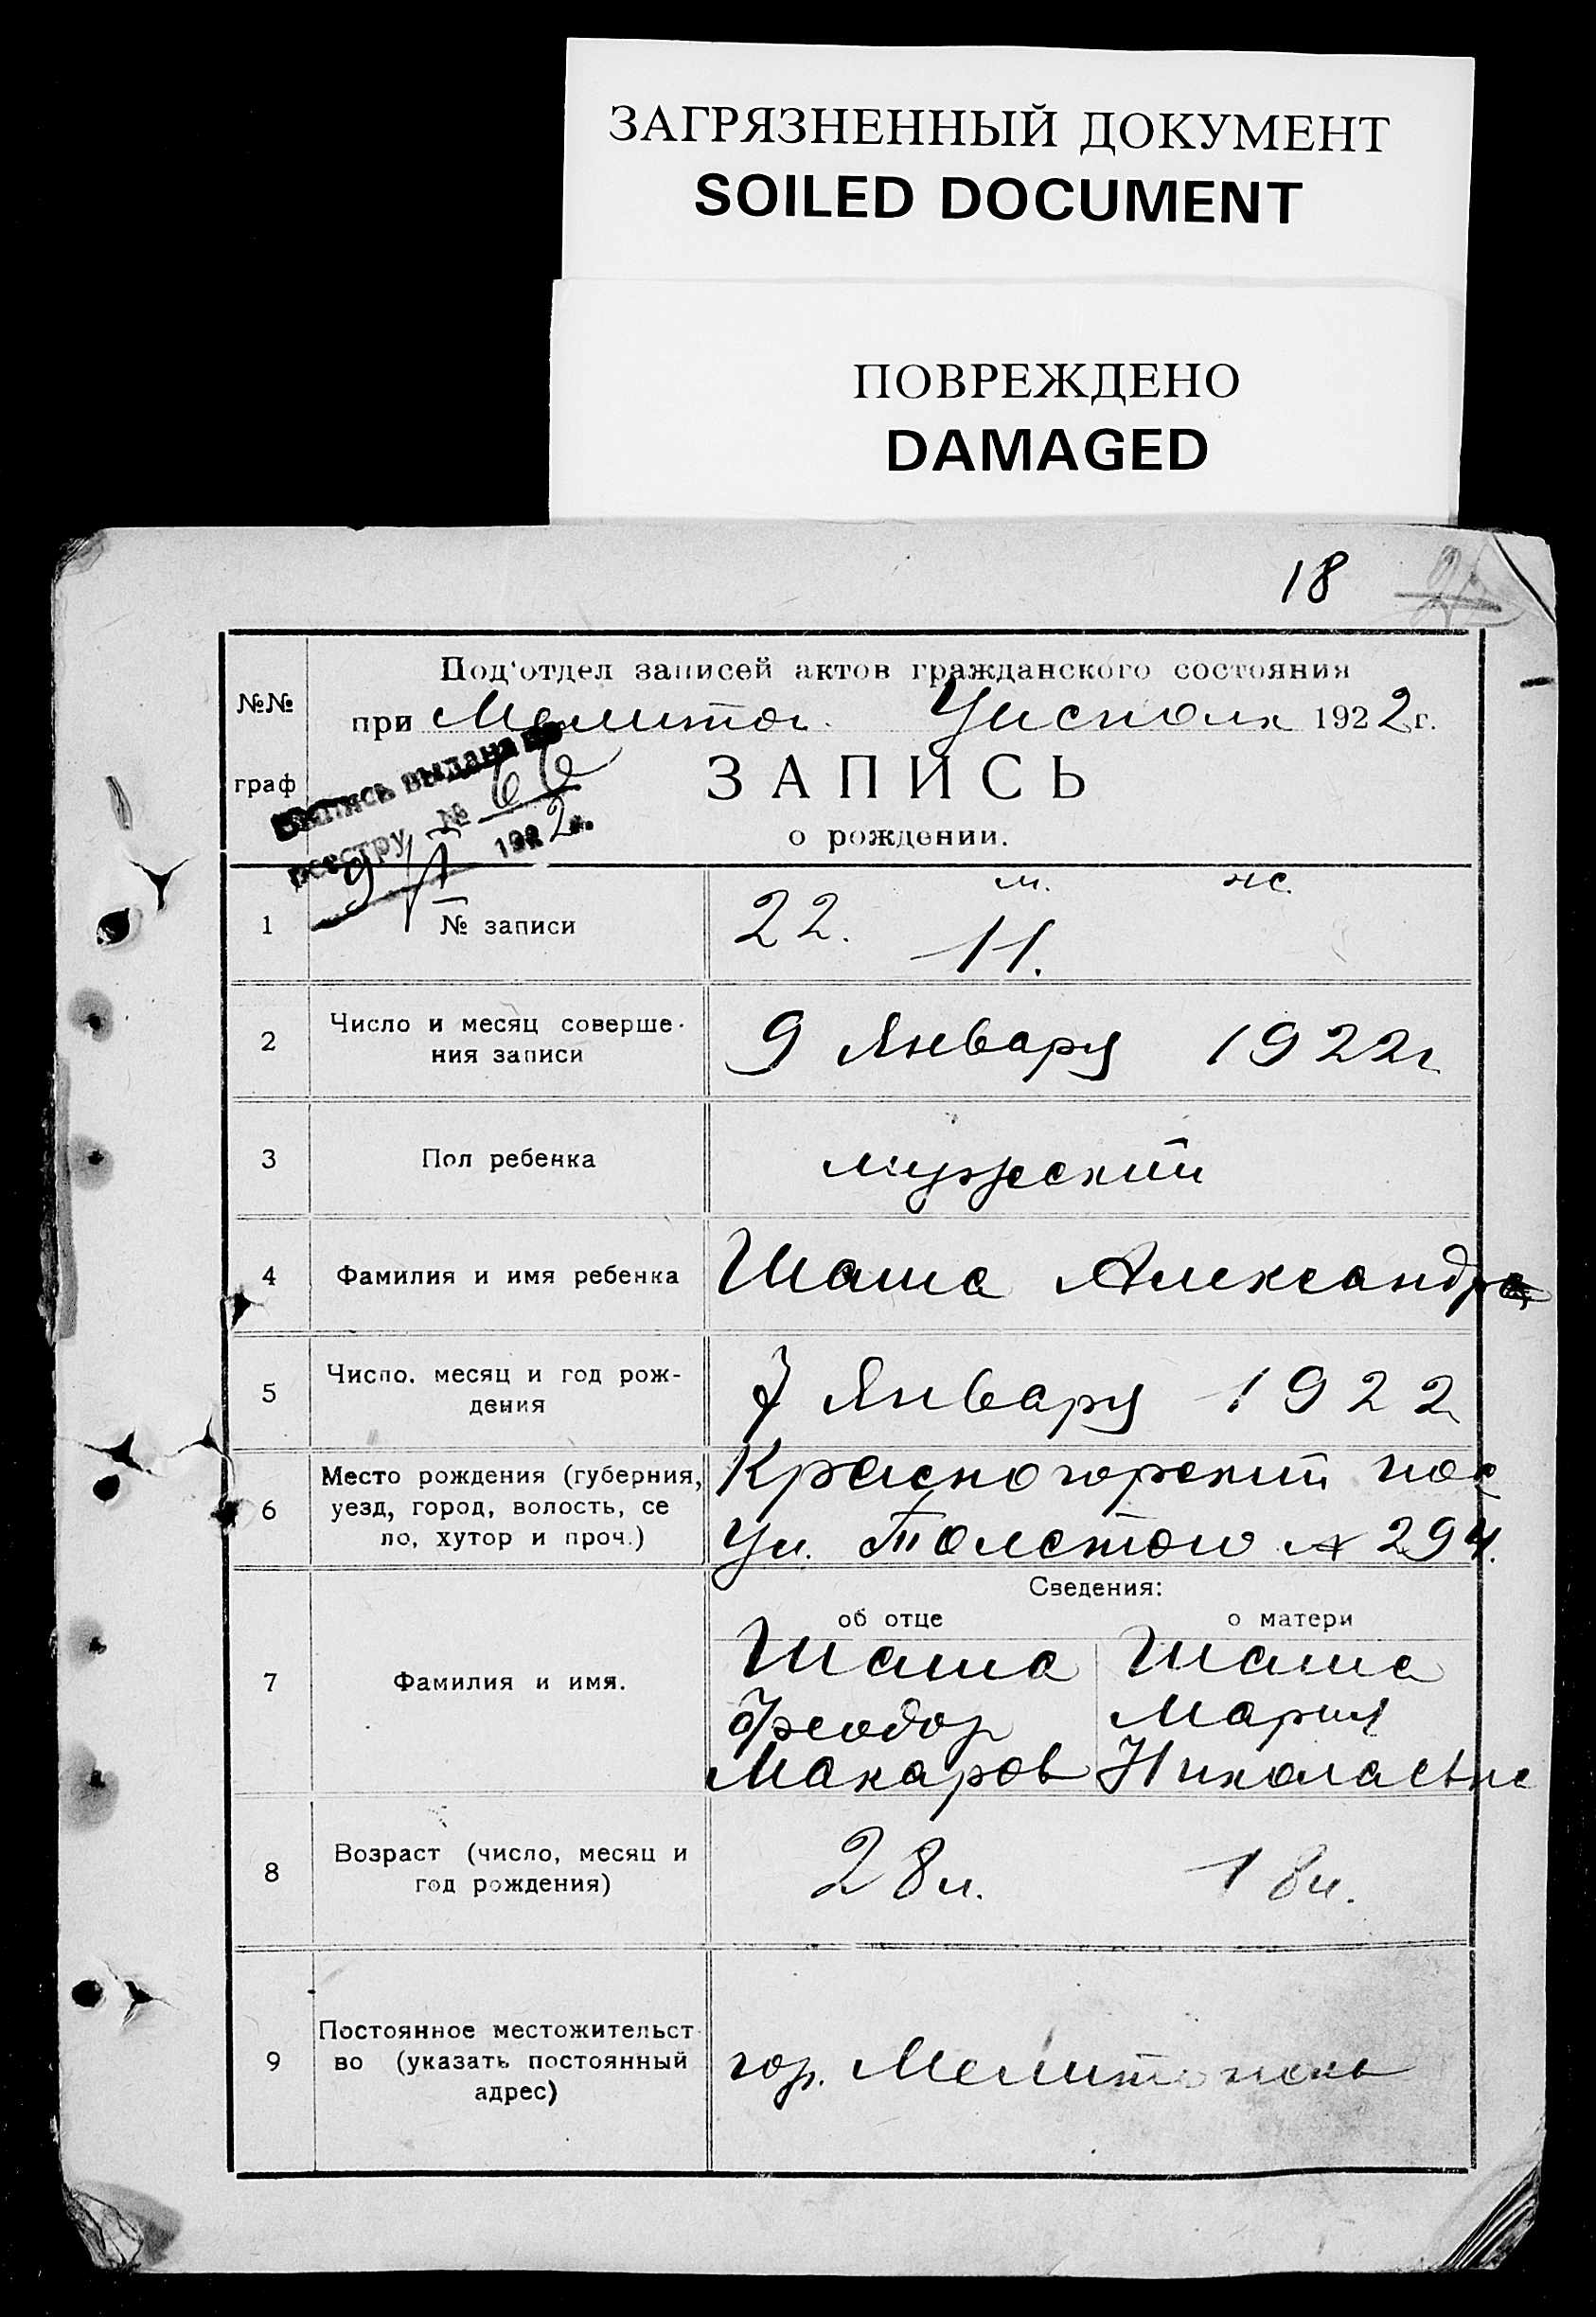 ЗАГРЯЗНЕННЫЙ ДОКУМЕНТ
SOILED DOCUMENT
ПОВРЕЖДЕНО
DAMAGED
18
№№ граф
Под'отдел записей актов гражданского состояния
при Мелитоп. Уисполк 1922 г.
Запись выдана по
реестру № 66
9/I 1922 г.
ЗАПИСЬ
о рождении.
м. ж.
1 № записи 22. 11.
2 Число и месяц соверше-
ния записи 9 Января 1922 г
3 Пол ребенка мужеский
4 Фамилия и имя ребенка Шаша Александр
5 Число. месяц и год рож-
дения 7 Января 1922
6 Место рождения (губерния, Красногорский пос
уезд, город, волость, се
ло, хутор и проч.) Ул. Толстого № 294.
Сведения:
об отце о матери
7 Фамилия и имя. Шаша Шаша
Феодор Мария
Макаров Николаевна
8 Возраст (число, месяц и
год рождения) 28 л. 18 л.
9 Постоянное местожительст
во (указать постоянный гор. Мелитополь
адрес)